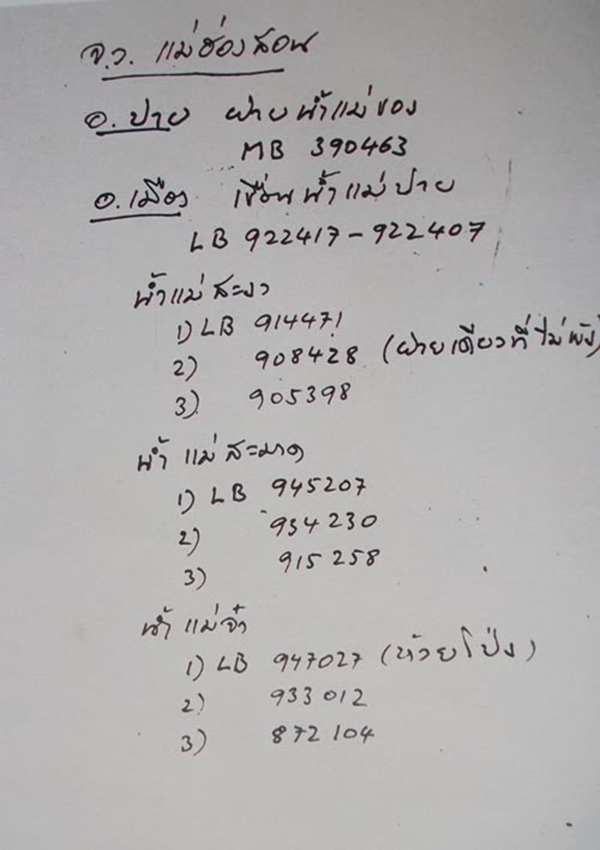 จ.ว. แม่ฮ่องสอน
อ. ปาย ฝายน้ำแม่ของ
MB 390463
อ. เมือง เขื่อนน้ำแม่ปาย
LB 922417 - 922407
น้ำแม่สะงา
1) LB 914471
2) 908428 (ฝายเดียวที่ไม่พัง)
3) 905398
น้ำ แม่สะมาด
1) LB 945207
2) 934230
3) 915258
น้ำ แม่จ๋า
1) LB 947027 (ห้วยโป่ง)
2) 933012
3) 872104